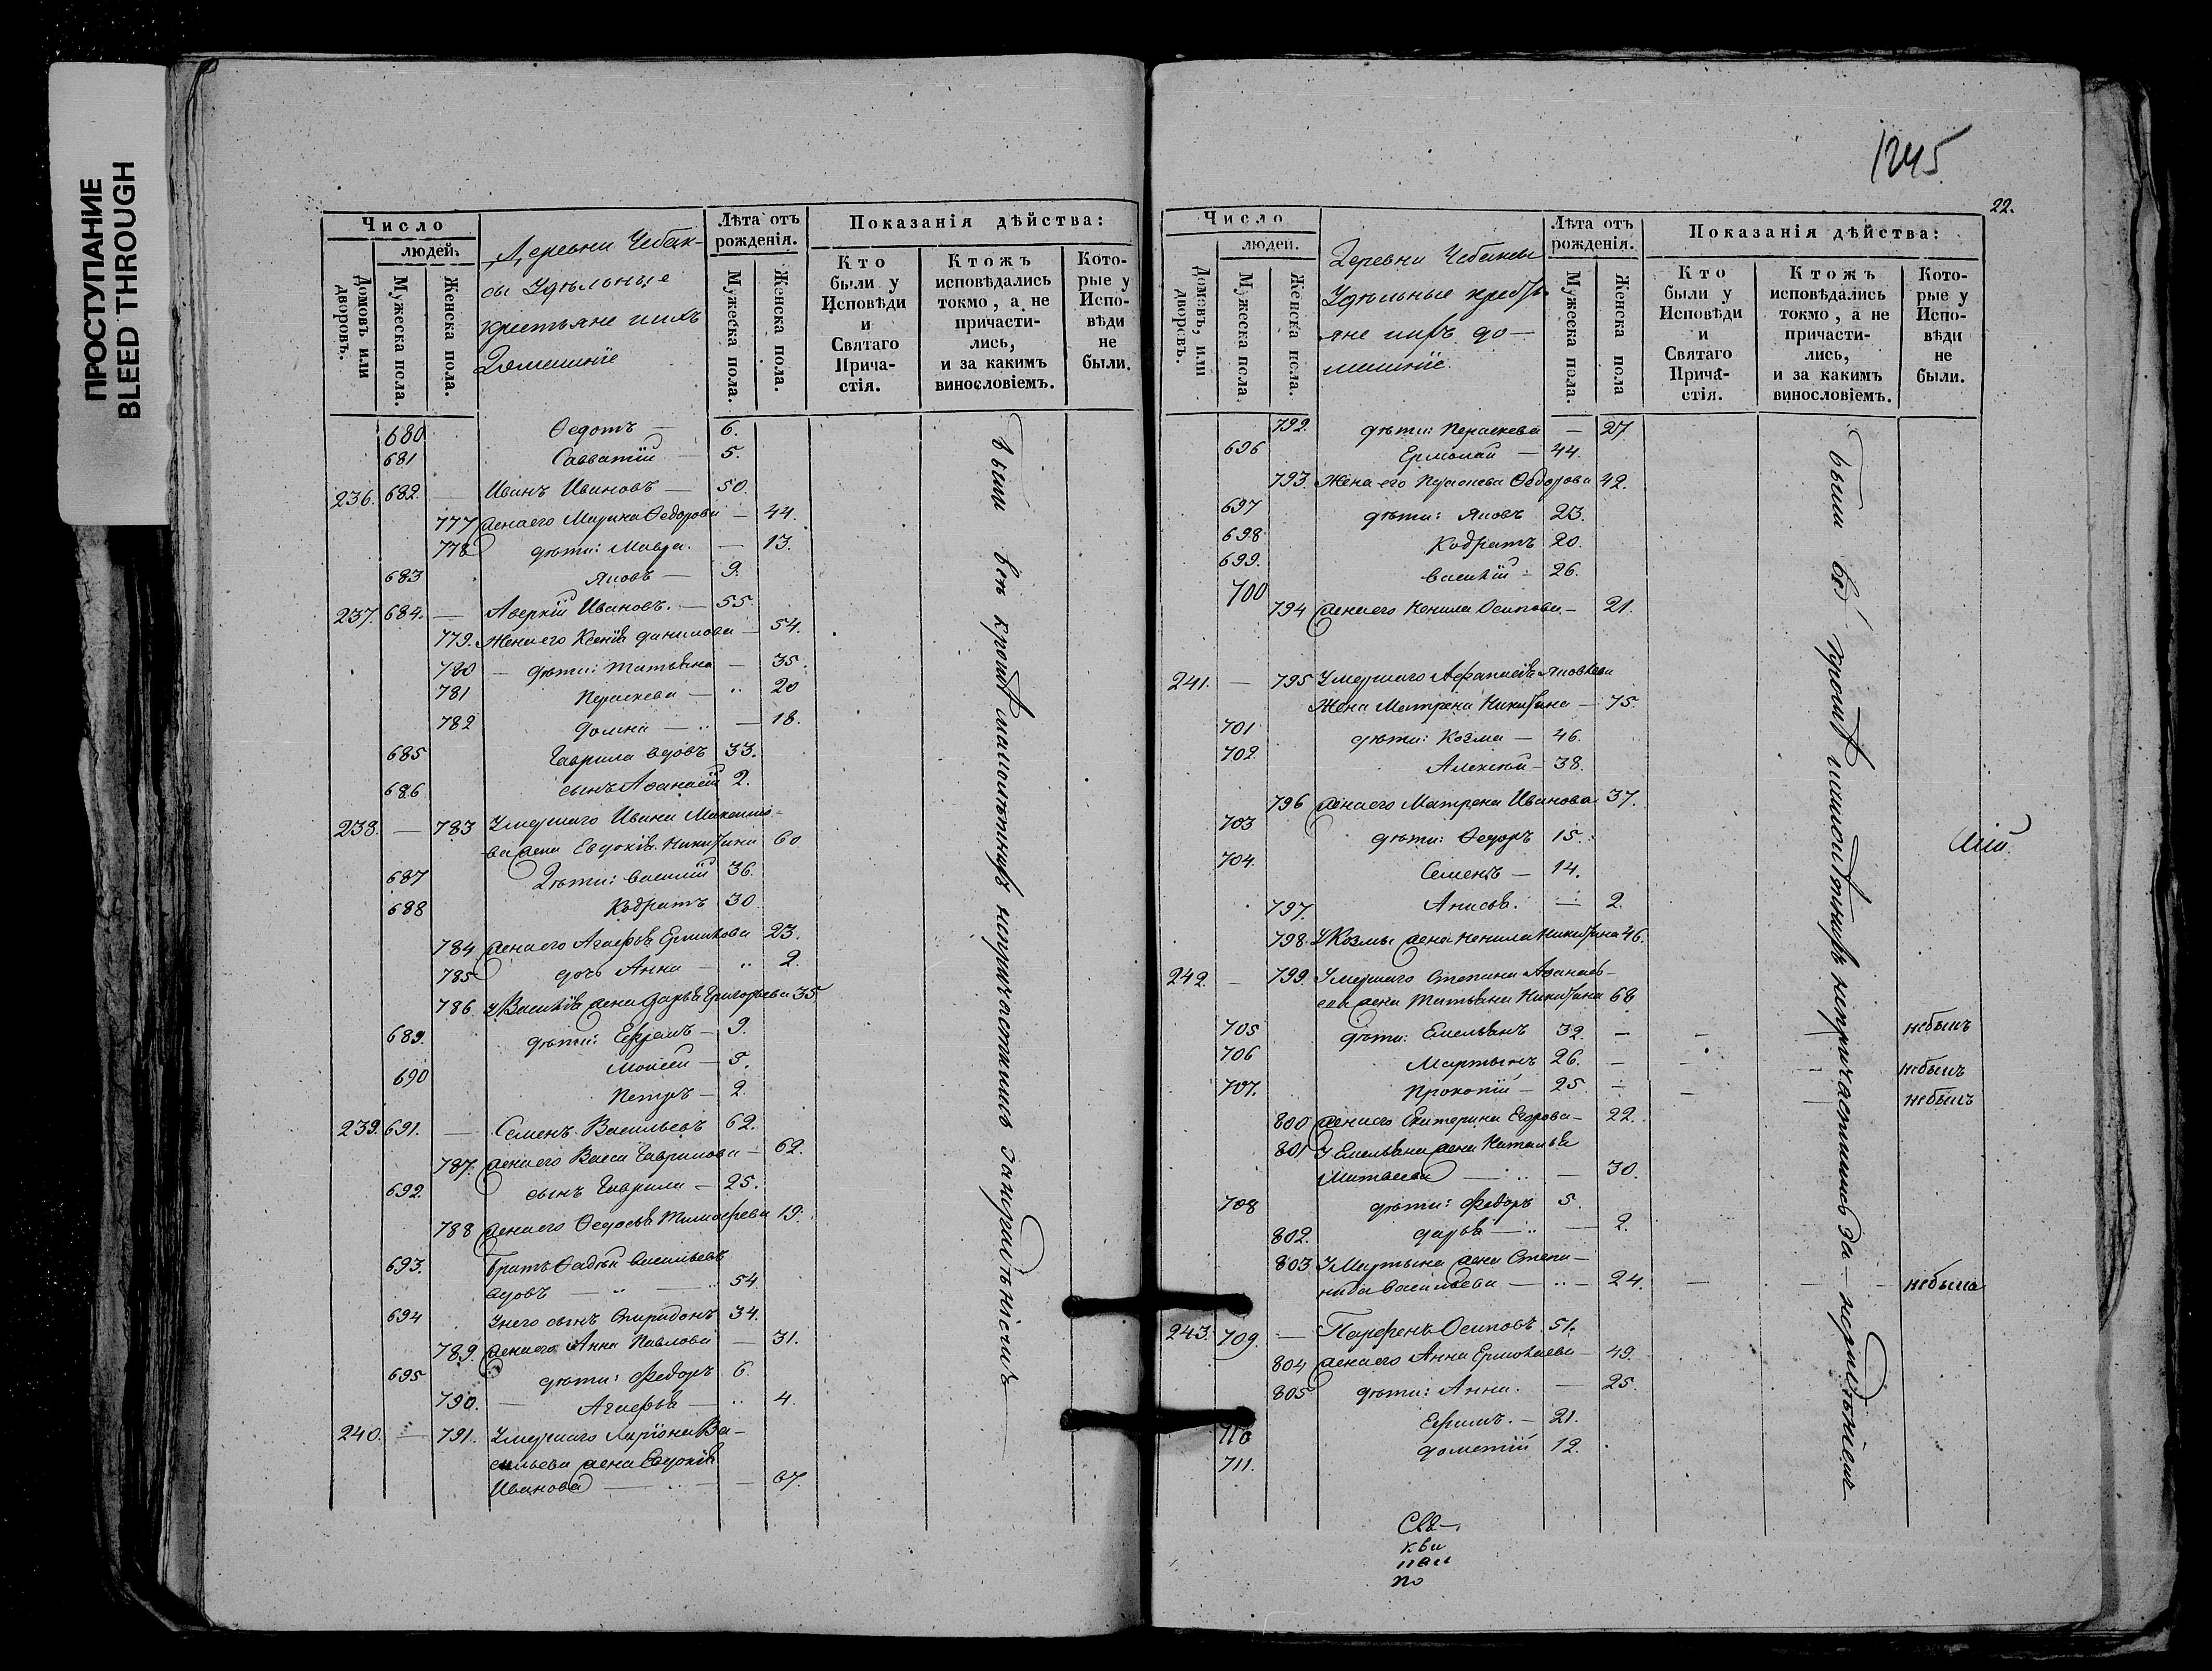 ПРОСТУПАНИЕ
BLEED THROUGH
Число
людей.
Домовъ или дворовъ.
Мужеска пола.
Женска пола.
Деревни Чебак-
сы Удѣльные
крестьяне ихъ
Домашніе
Лѣта отъ рожденія.
Мужеска пола.
Женска пола.
Показанія дѣйства:
Кто были у Исповѣди и Святаго Прича- стія.
Ктожъ исповѣдались токмо, а не причасти- лись, и за какимъ винословіемъ.
Кото- рые у Испо- вѣди не были.
680 Ѳедотъ — 6.
681 Савватій — 5.
236. 682. — Иванъ Ивановъ — 50.
777 жена его Марина Ѳедорова — 44.
778 дѣти: Мавра. — 13.
683 Яковъ — 9.
237. 684. — Аверкій Ивановъ. — 55.
779. Жена его Ксенія Данилова — 54.
780 — дѣти: Татьяна — 35.
781 Параскева — 20
782 Домна — 18.
685 Гаврила вдовъ 33.
686 сынъ Аѳанасій 2.
238. — 783 Умершаго Ивана Максимо-
ва жена Евдокія Никитина 60
687 Дѣти: Василій 36.
688 Кодратъ 30.
784 жена его Агаѳья Ермилова 23.
785 дочь Анна — 2.
786 У Василія жена Дарья Григорьева 35.
689. дѣти: Ефремъ — 9.
690 Моисей — 5.
Петръ — 2.
239. 691. — Семенъ Васильевъ 62.
787. жена его Васса Гаврилова — 62.
692. сынъ Гаврила — 25.
788 жена его Ѳедосья Тимоѳеева 19.
693. Братъ Ѳадѣй Васильевъ
вдовъ — 54
694 У него сынъ Спиридонъ 34.
789. жена его Анна Павлова — 31.
695 дѣти: Федоръ 6.
790. — Агаѳья — 4.
240. — 791. Умершаго Ларіона Ва-
сильева жена Евдокія
Иванова — 67.
Были всѣ кромѣ малолѣтнихъ непричастились за нерадѣніемъ
1245
22.
Число
людей.
Домовъ, или дворовъ.
Мужеска пола
Женска пола.
Деревни Чебаксы
Удѣльные кресть-
яне ихъ до-
машніе.
Лѣта отъ рожденія.
Мужеска пола.
Женска пола
Показанія дѣйства:
Кто были у Исповѣди и Святаго Прича- стія.
Ктожъ исповѣдались токмо, а не причасти- лись, и за какимъ винословіемъ.
Кото- рые у Испо- вѣди не были.
792. дѣти: Параскева — 27.
696 Ермолай — 44.
793. Жена его Параскева Ѳедорова 42.
697 дѣти: Яковъ 23.
698 Кодратъ 20.
699. Василій — 26.
700
794 жена его Ненила Осипова — 21.
241. — 795 Умершаго Афанасія Яковлева
Жена Матрена Никитина — 75.
701 дѣти: Козма — 46.
702 Алексѣй — 38.
796 жена его Матрена Иванова 37.
703 дѣти: Ѳедоръ 15.
704. Семенъ — 14.
797. Анисья. — 2.
798. У Козмы жена Ненила Никитина 46.
242. — 799. Умершаго Степана Аѳанась-
ева жена Татьяна Никитина 68
705 дѣти: Емельянъ 32. — — небылъ
706 Мартынъ 26. — — небылъ
707. Прокопій — 25 — — небылъ
800 жена его Екатерина Егорова — 22.
801 У Емельяна жена Наталья
Матвеева — 30.
708 дѣти: Федоръ 5.
802. Дарья — 2.
803 У Мартына жена Степа-
нида Васильева — 24. — — небыла
243. 709. — Парфенъ Осиповъ 51.
804 жена его Анна Ермолаева — 49.
805 дѣти: Анна. — 25.
710 Ефимъ. — 21.
711. Дометій 12.
Были всѣ кромѣ малолѣтнихъ непричастились за нерадѣніемъ